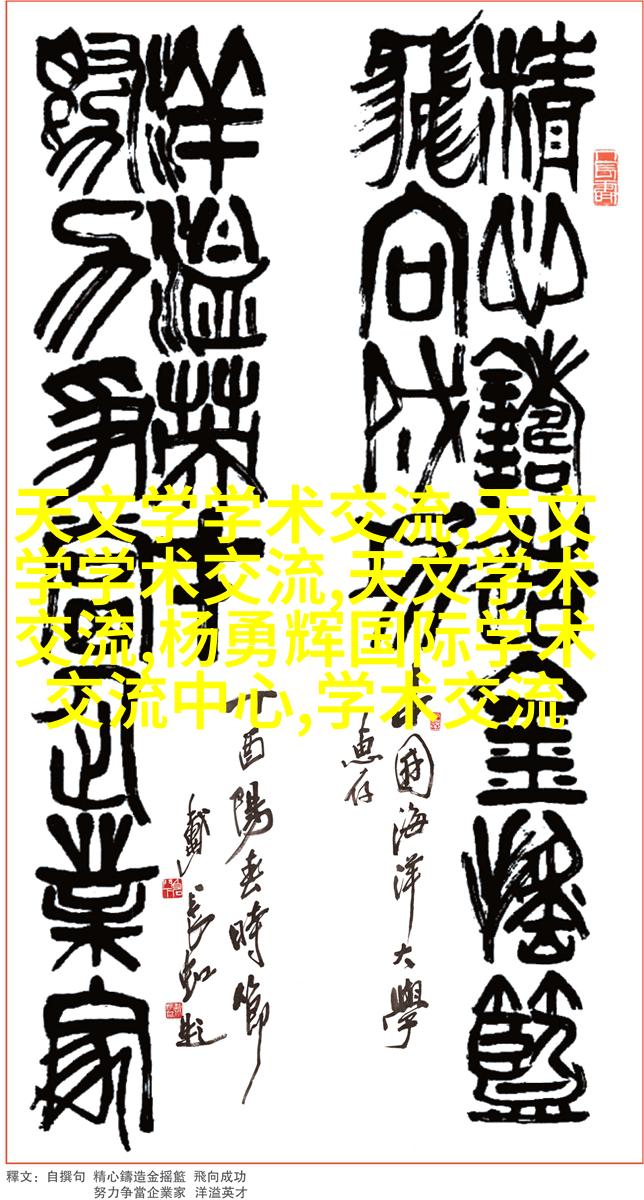 精心鑄造金搖籃
飛向成功
中國海洋大學
惠存
洋溢英才
努力爭當企業家
丁酉陽春時節
戴長虹題
天文学学术交流,天文
学学术交流,天文学术
交流,杨勇辉国际学术
交流中心,学术交流
釋文：自撰句 精心鑄造金摇籃 飛向成功
努力争當企業家 洋溢英才